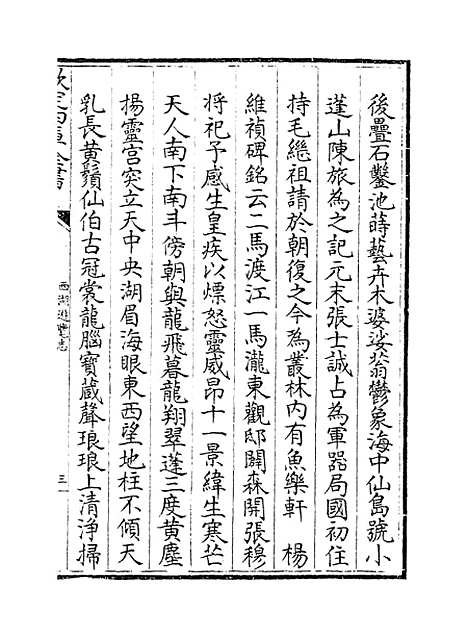 後疊石鑿池蒔藝卉木婆娑蓊鬱象海中仙島號小
蓬山陳旅為之記元末張士誠占為軍器局國初住
持毛繼祖請於朝復之今為叢林内有魚樂軒　楊
維禎碑銘云二馬渡江一馬瀧東觀邸闢森開張穆
将祀予感生皇疾以熛怒靈威昂十一景緯生寒芒
天人南下南斗傍朝與龍飛暮龍翔翠蓬三度黄塵
揚靈宫突立天中央湖眉海眼東西望地柱不傾天
乳長黄鬚仙伯古冠裳龍腦寶蔵聲琅琅上清淨掃
欽定四庫全書
西湖遊覽志
三